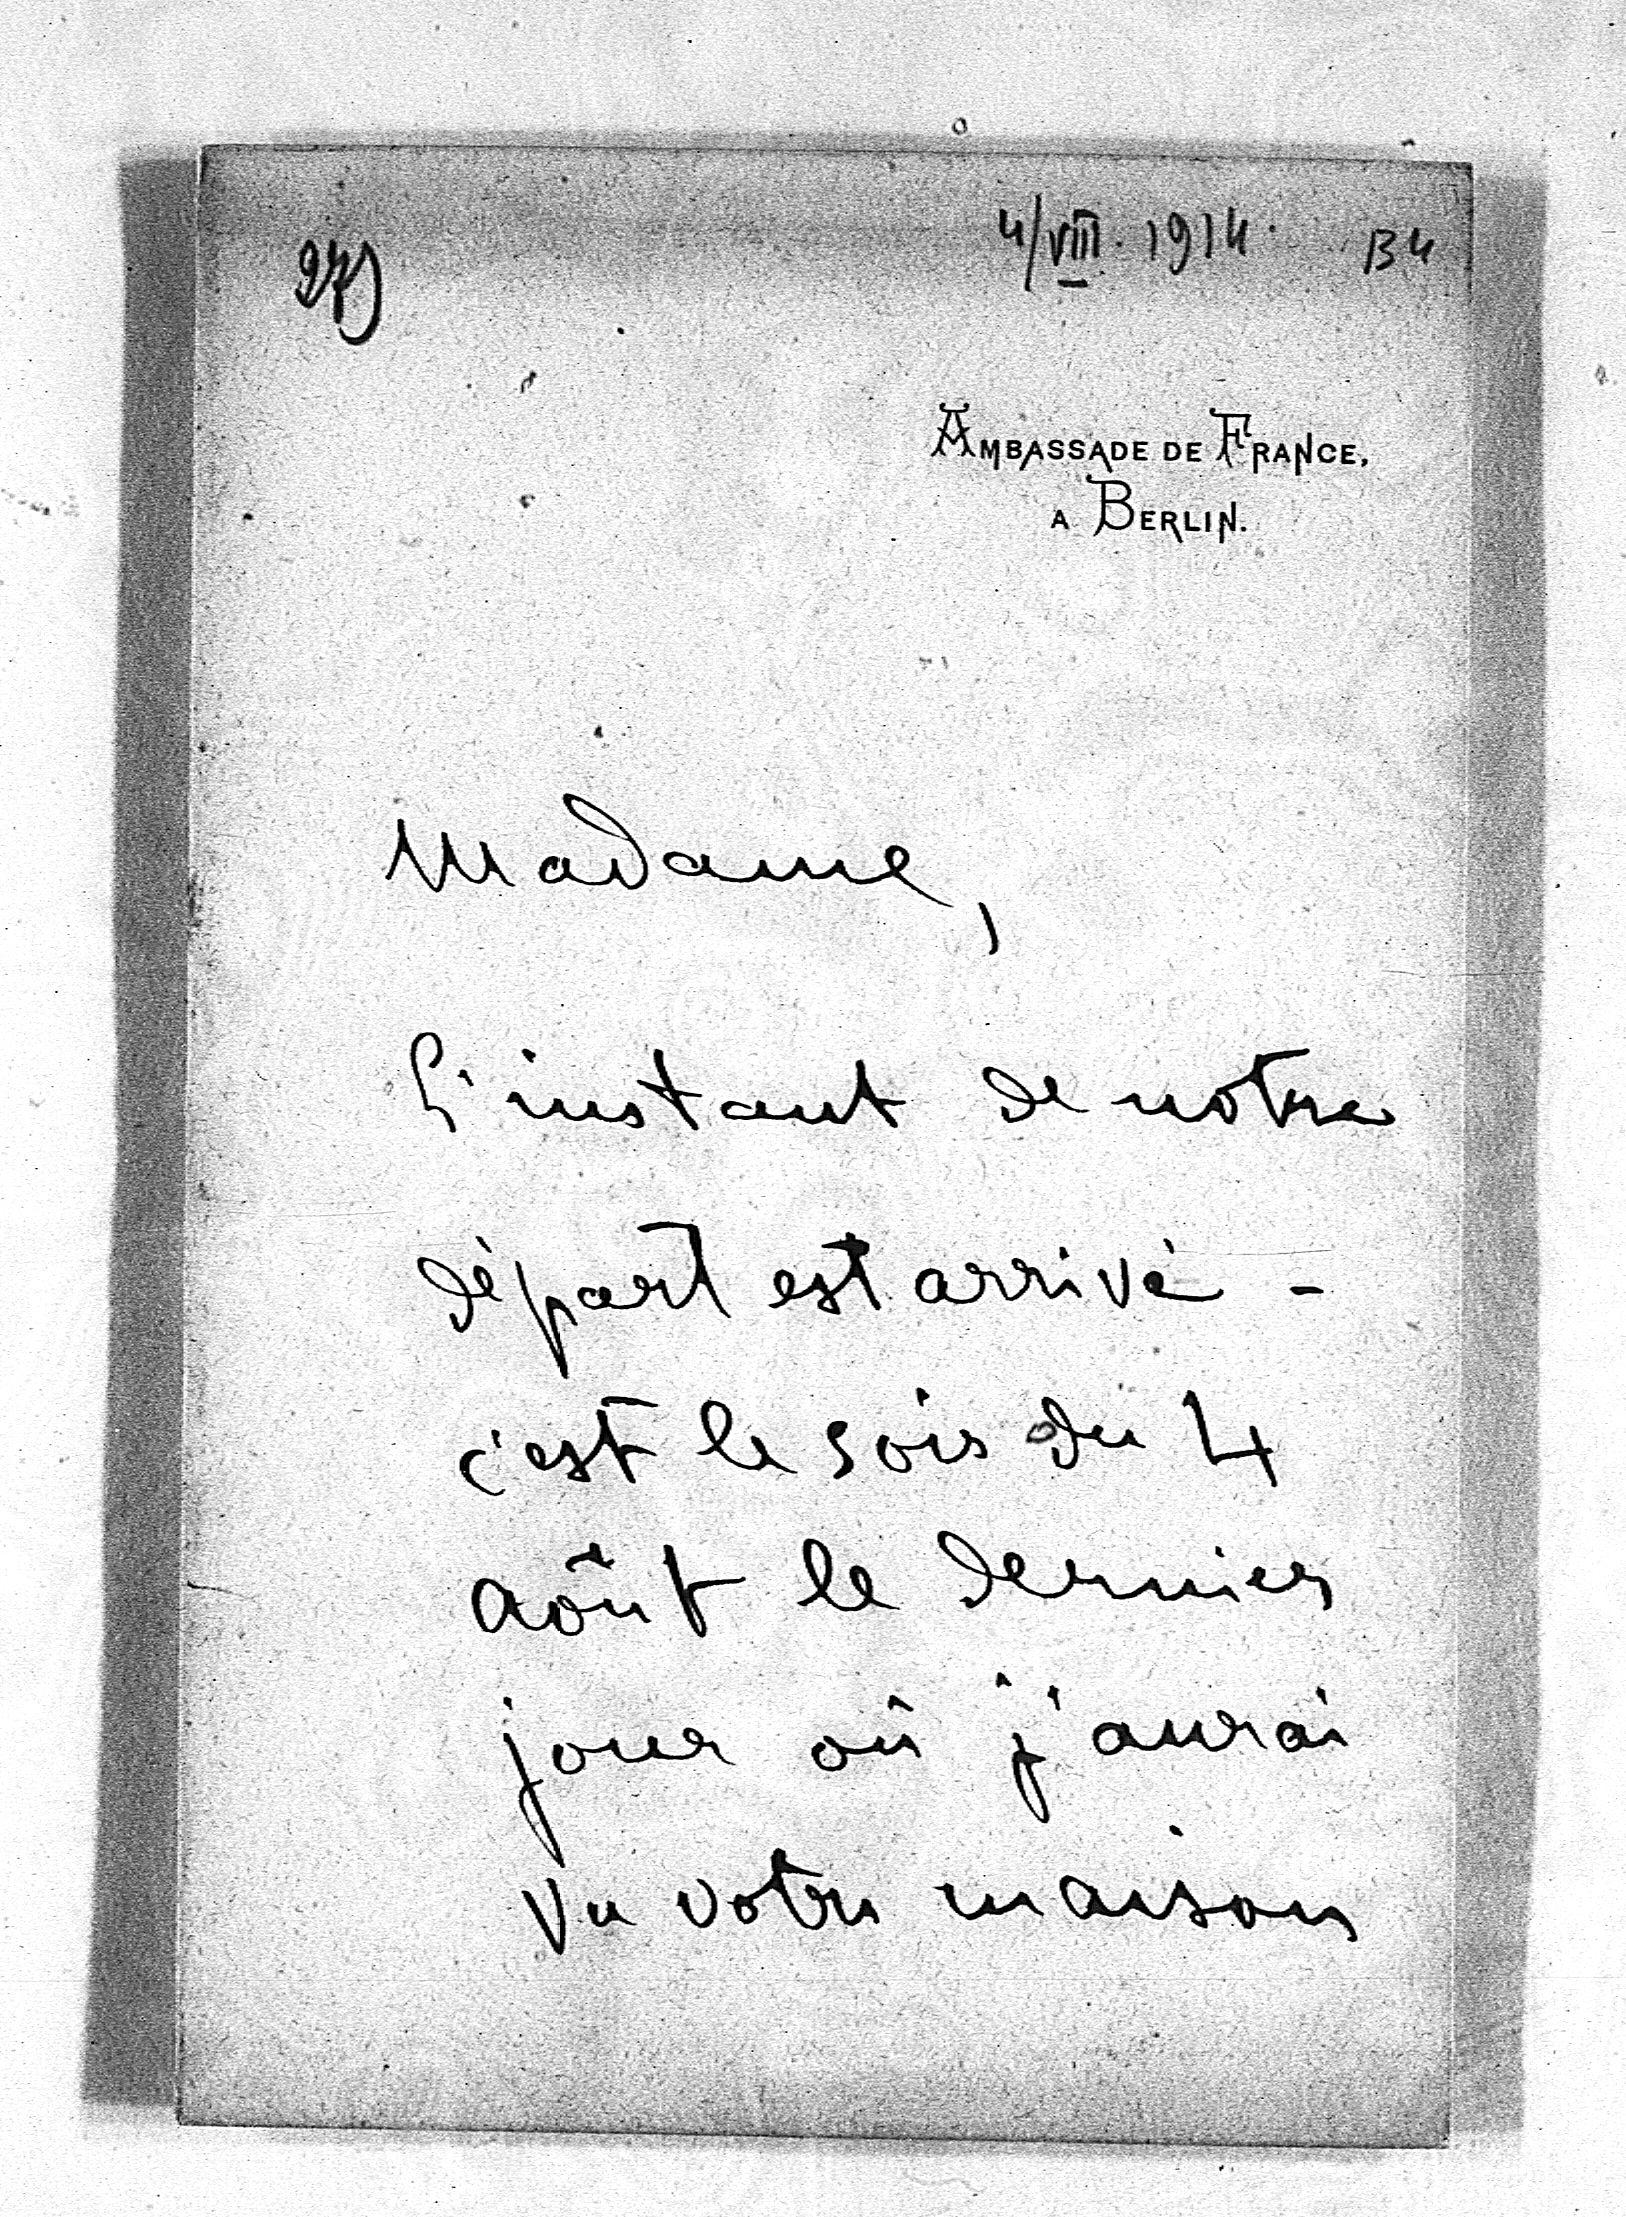 4/VIII. 1914. B4
AMBASSADE DE FRANCE,
A BERLIN.
Madame,
L'instant de notre
départ est arrivé -
c'est le soir du 4
août le dernier
jour où j'aurai
vu votre maison